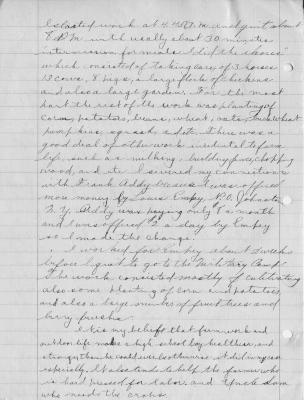 I started work at 4.45 A.M. and quit about
8 P.M. with usually about 30 minutes
intermission for meals. I did the chores
which consisted of taking care of 3 horses
13 cows, 8 pigs, a large flock of chickens
and also a large garden. For the most
part the rest of the work was planting of
corn, potatoes, beans, wheat, oats, buckwheat
pumpkins, squash, etc. There was a
good deal of other work incidental to farm
life, such as milking, building fires, chopping
wood, and etc. I severed my connections
with Frank Addy because I was offered
more money by Louis Empey, P.O. Johnstown
N.Y. Addy was paying only a month
and I was offered 2 a day by Empey
so I made the change.
I worked for Empey about 3 weeks
before I quit to go to the Military Camp.
The work consisted mostly of cultivating
also some planting of corn and potatoes
and also a large number of fruit trees and
berry bushes.
It is my belief that farm work and
outdoor life makes a high school boy healthier, and
stronger than he could ever be otherwise. It did in my case
especially. It also tends to help the farmer who
is hard pressed for labor, and Uncle Sam
who needs the crops.